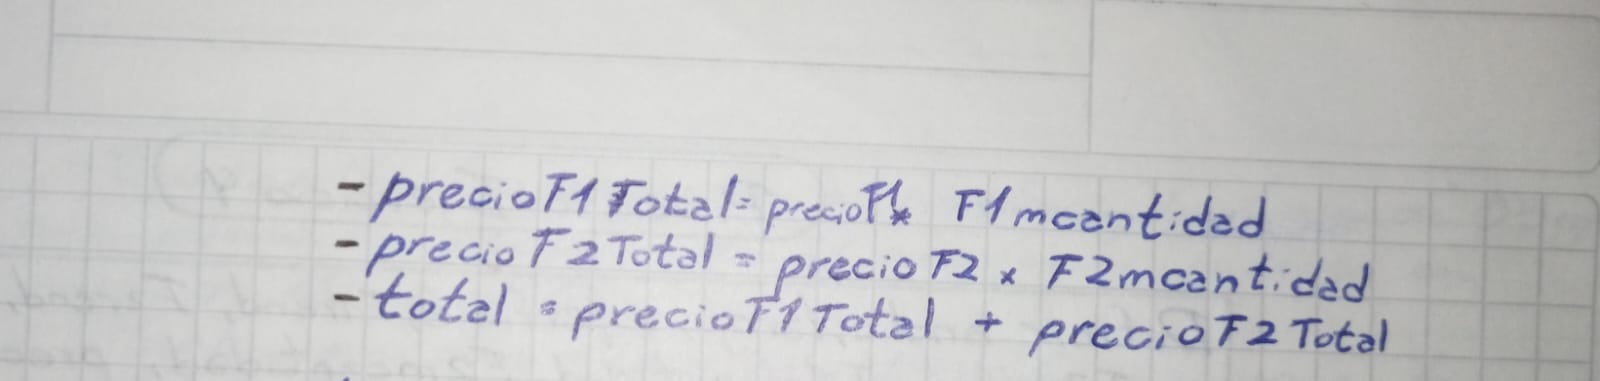 - precioT1Total= precioT1* T1mcantidad
- precioT2Total = precioT2 x T2mcantidad
- total = precioT1Total + precioT2Total